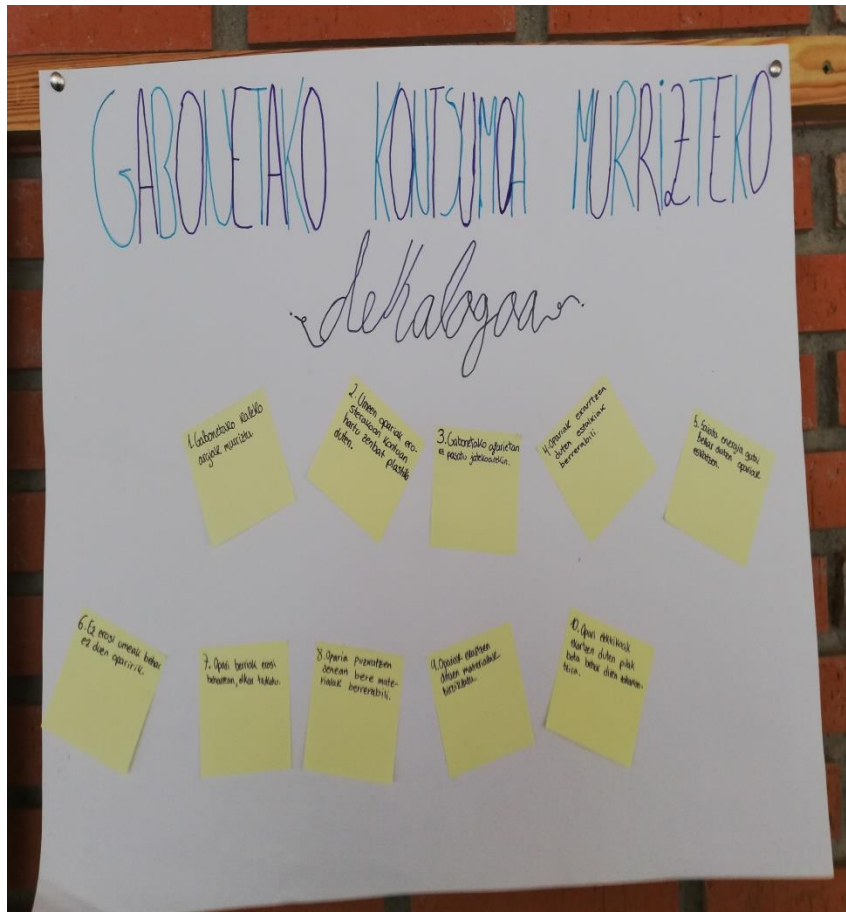 GABONETAKO KONTSUMOA MURRIZTEKO
dekalogoa
1. Gabonetako kaleko
argiak murriztu.
2. Umeen opariak ero-
sterakoan kontuan
hartu zenbat plastiko
duten.
3. Gabonetako afarietan
ez pasatu jatekoarekin.
4. Opariak ekartzen
duten estalkiak
berrerabili.
5. Saiatu energia gutxi
behar duten opariak
eskatzen.
6. Ez erosi umeak behar
ez duen oparirik.
7. Opari berriak erosi
beharrean, elkar trukatu.
8. Oparia puskatzen
denean bere mate-
rialak berrerabili.
9. Opariak ekartzen
dituen materialak
birziklatu.
10. Opari elektrikoak
ekartzen duten pilak
bota behar diren